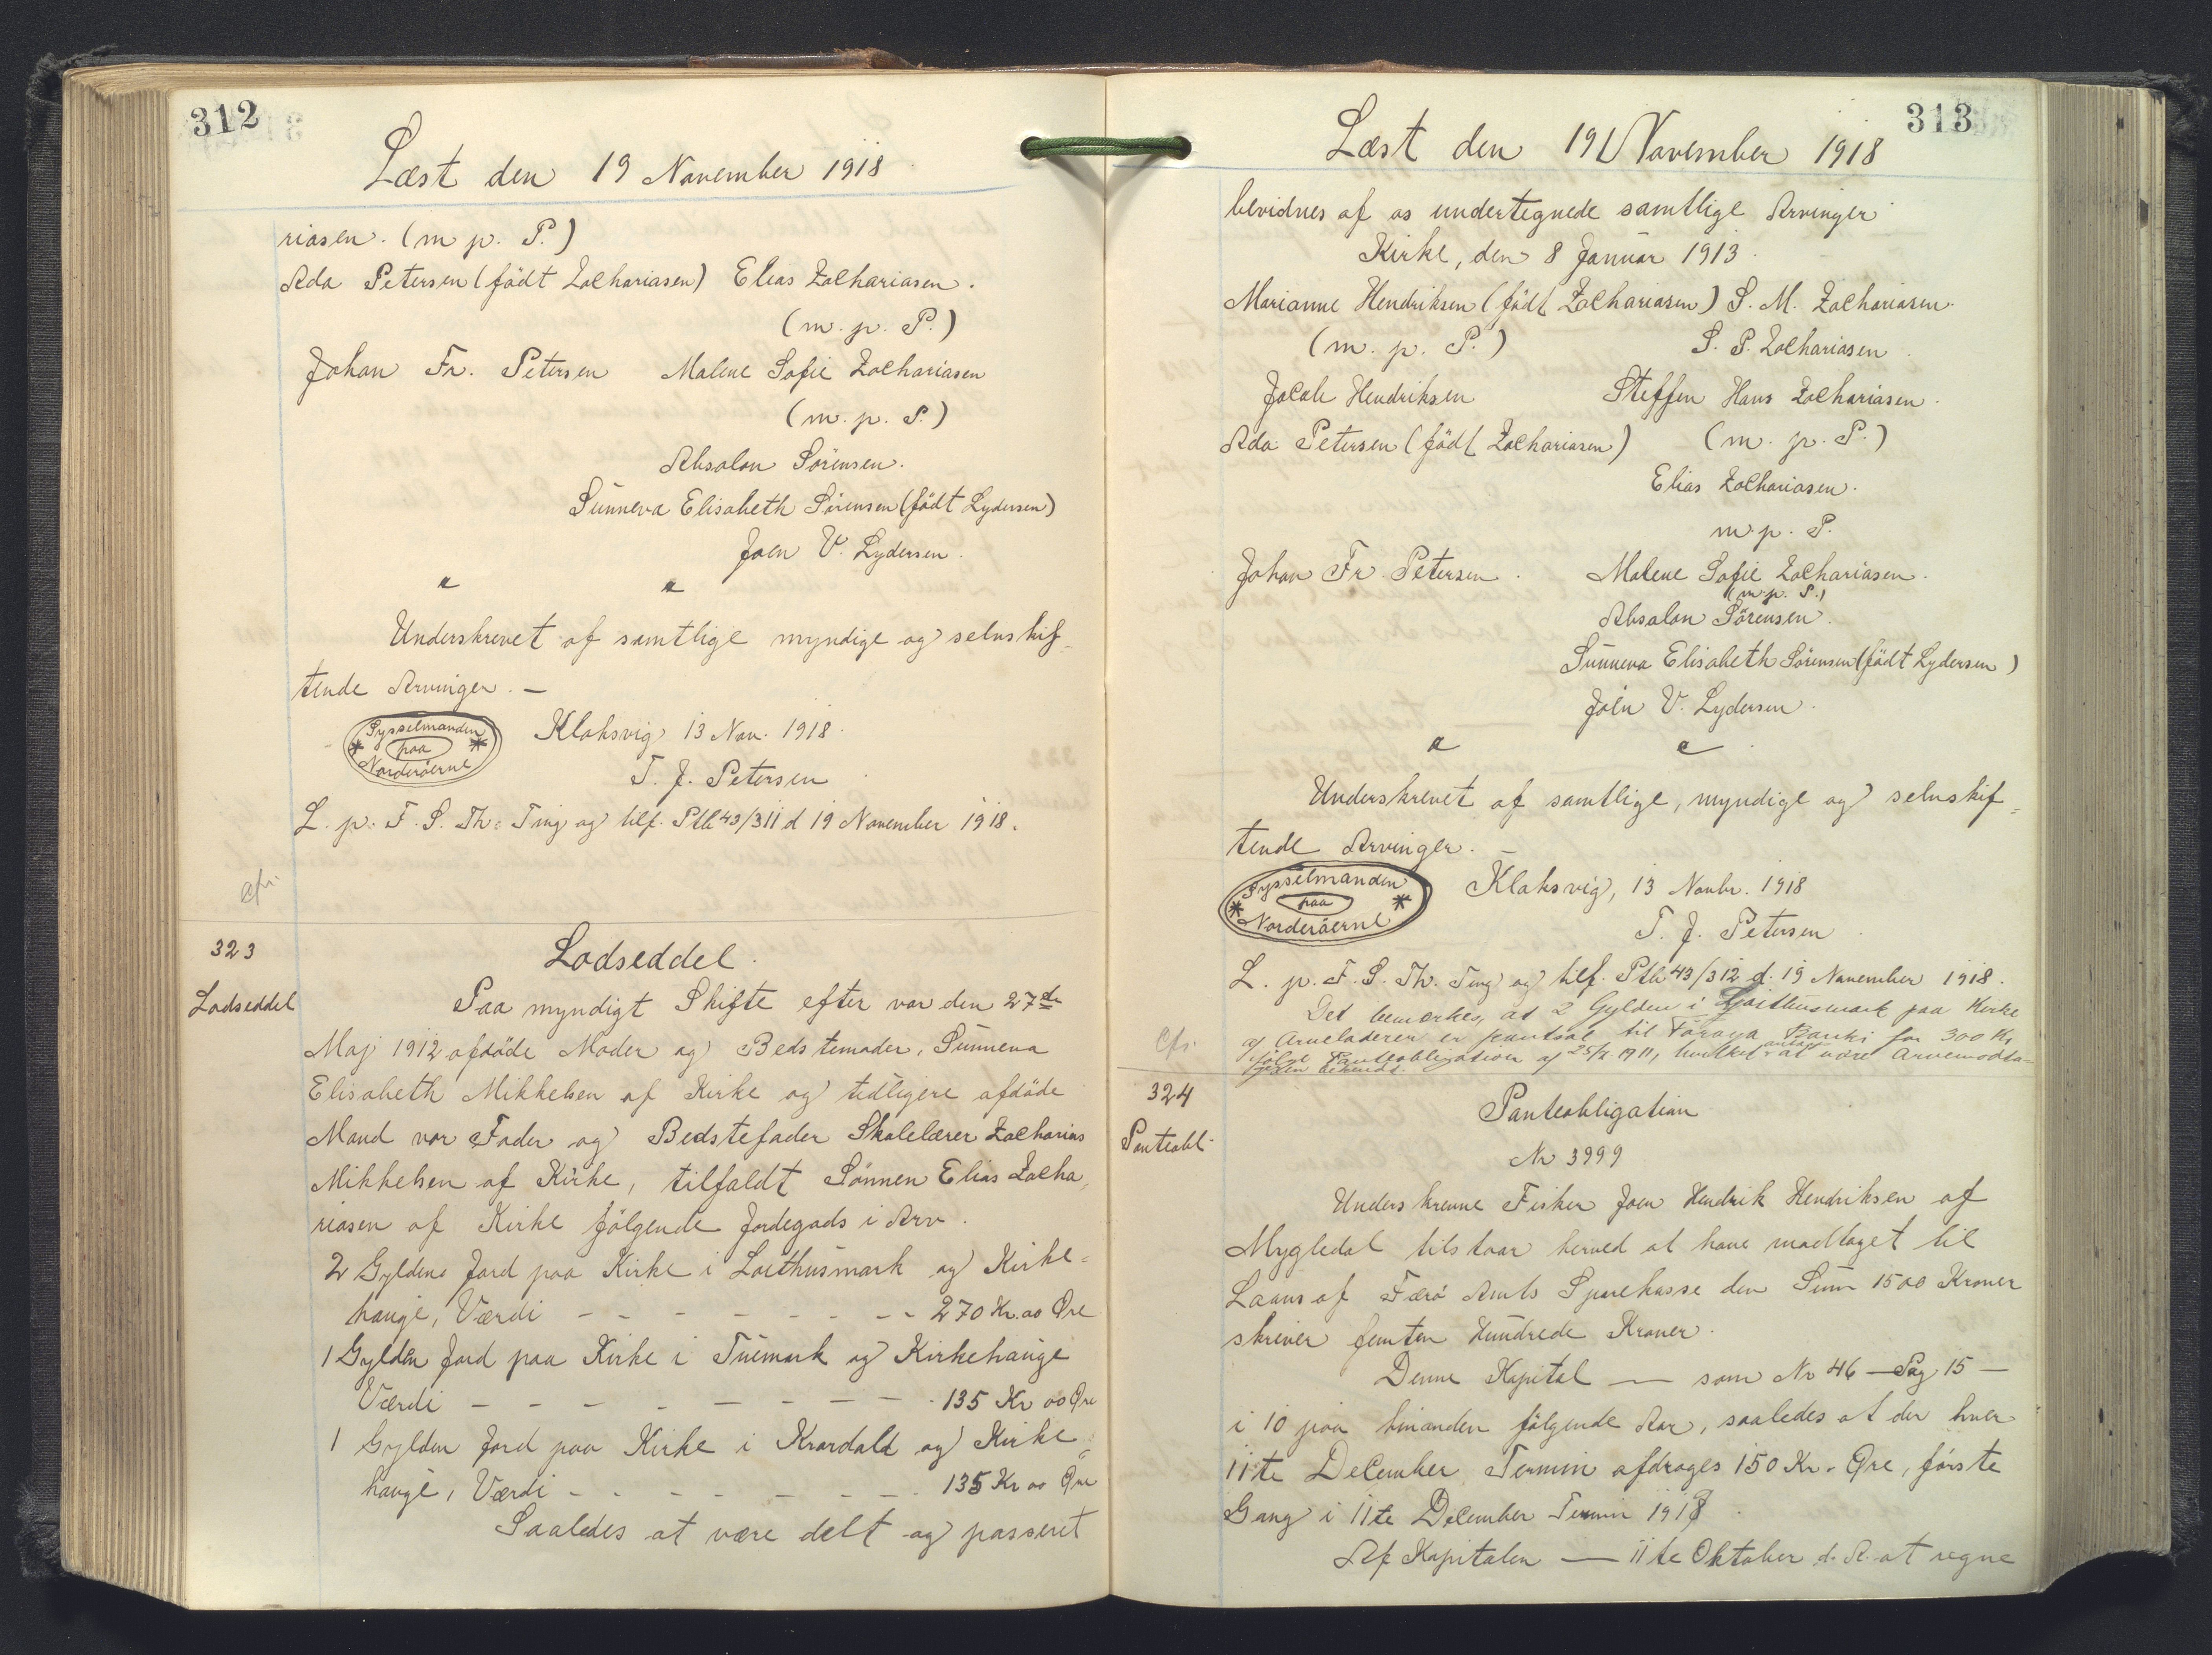 312
Læst den 19 November 1918
riasen. (m p. P.)
Ada Petersen (födt Zachariasen) Elias Zachariasen.
(m. p. P.)
Johan Fr. Petersen Malene Sofie Zachariasen
(m. p. P.)
Absalon Sörensen.
Sünneva Elisabeth Sörensen (födt Lydersen)
Joen V. Lydersen.
Underskrevet af samtlige myndige og selvskif-
tende Arvinger. —
Sysselmanden
* paa *
Norderöerne
Klaksvig 13 Nov. 1918.
T. J. Petersen
L. p. F. S. Th. Ting og tilf. Ptb 43/311 d 19 November 1918.
cfr.
323
Lodseddel
Lodseddel.
Paa myndigt Skifte efter vor den 27de
Maj 1912 afdöde Moder og Bedstemoder, Sünneva
Elisabeth Mikkelsen af Kirke og tidligere afdöde
Mand vor Fader og Bedstefader Skolelærer Zacharias
Mikkelsen af Kirke, tilfaldt Sönnen Elias Zacha-
riasen af Kirke fölgende Jordegods i Arv.
2 Gylden Jord paa Kirke i Loithusmark og Kirke-
hauge, Værdi - - - - - - - - 270 Kr. 00 Øre
1 Gylden Jord paa Kirke i Tüemark og Kirkehauge
Værdi - - - - - - - - 135 Kr 00 Øre
1 Gylden Jord paa Kirke i Krardald og Kirke-
hauge, Værdi - - - - - - - - 135 Kr 00 Øre
Saaledes at være delt og passeret
313
Læst den 19 November 1918
bevidnes af os undertegnede samtlige Arvinger
Kirke, den 8 Januar 1913.
Marianne Hendriksen (födt Zachariasen) S. M. Zachariasen.
(m. p. P.) S. P. Zachariasen.
Jacob Hendriksen Steffen Hans Zachariasen.
Ada Petersen (födt Zachariasen) (m. p. P.)
Elias Zachariasen.
m. p. P.
Johan Fr. Petersen. Malene Sofie Zachariasen.
(m. p. P.)
Absalon Sörensen.
Sünneva Elisabeth Sörensen (födt Lydersen)
Joen V. Lydersen.
Underskrevet af samtlige, myndige og selvskif-
tende Arvinger. —
Sysselmanden
* paa *
Norderöerne
Klaksvig, 13 Novbr. 1918
T. J. Petersen
L. p. F. S. Th. Ting og tilf. Ptb 43/312 d. 19 November 1918.
Det bemærkes, at 2 Gylden i paa Kirke
af Arveladeren er pantsat til Föroya Banki for 300 Kr
ifölge Panteobligation af 1911, hvilket at være Arvemodta-
geren bekendt.
cfr.
324
Panteobl.
Panteobligation
Nr 3999
Underskrevne Fisker Joen Hendrik Hendriksen af
Mygledal tilstaar herved at have modtaget til
Laans af Færö Amts Sparekasse den Sum 1500 Kroner
skriver femten Hundrede Kroner.
Denne Kapital — som Nr 46 — Pag 15 —
i 10 paa hinanden fölgende Aar, saaledes at der hver
11te December Termin afdrages 150 Kr. Øre, förste
Gang i 11te December Termin 1918.
Af Kapitalen — 11te Oktober d. A. at regne